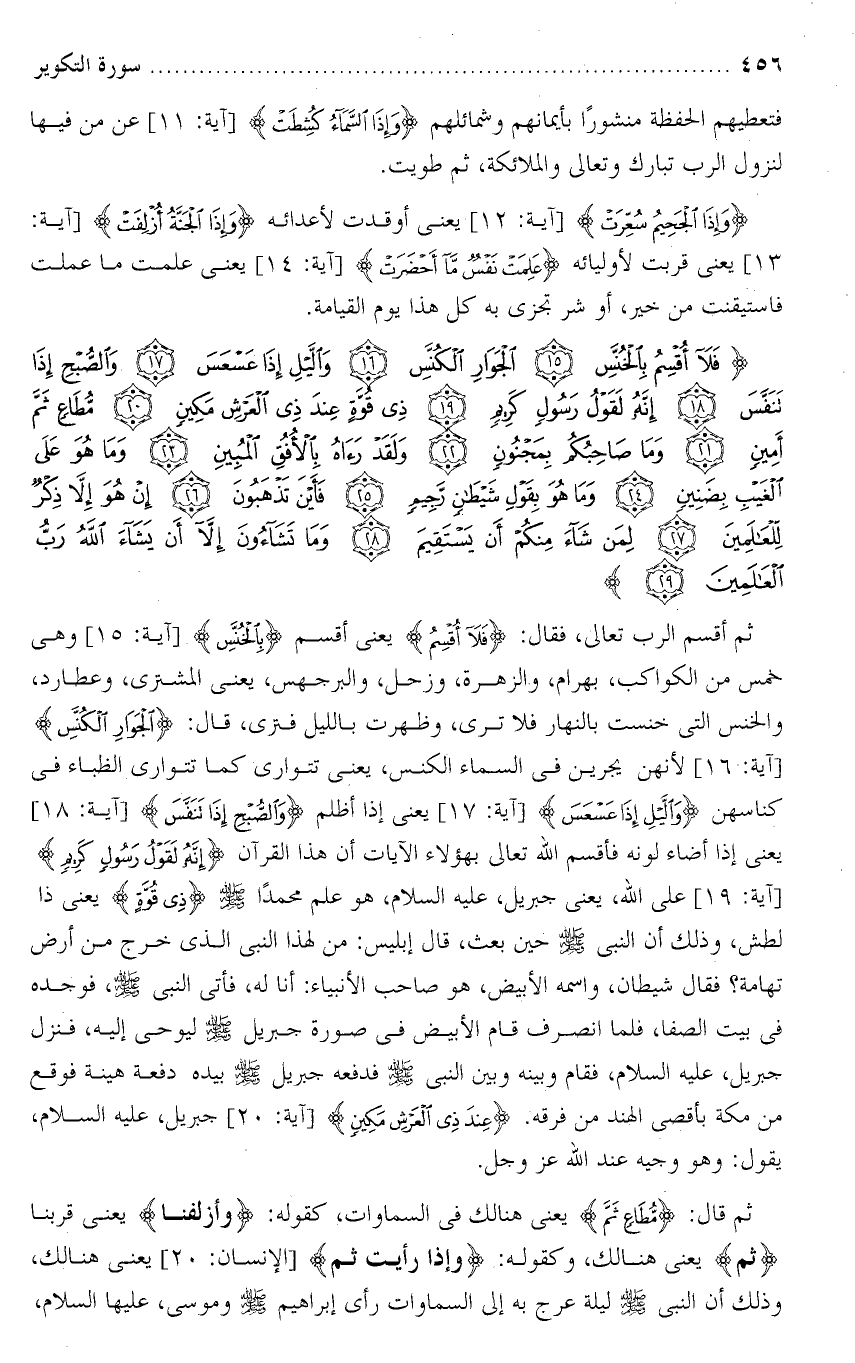 ٤٥٦ ........................................................................ سورة التكوير
فتعطيهم الحفظة منشورًا بأيمانهم وشمائلهم ﴿وَإِذَا ٱلسَّمَآءُ كُشِطَتْ﴾ [آية: ١١] عن من فيها
لنزول الرب تبارك وتعالى والملائكة، ثم طويت.
﴿وَإِذَا ٱلْجَحِيمُ سُعِّرَتْ﴾ [آية: ١٢] يعنى أوقدت لأعدائه ﴿وَإِذَا ٱلْجَنَّةُ أُزْلِفَتْ﴾ [آية:
١٣] يعنى قربت لأوليائه ﴿عَلِمَتْ نَفْسٌ مَّآ أَحْضَرَتْ﴾ [آية: ١٤] يعنى علمت ما عملت
فاستيقنت من خير، أو شر تجزى به كل هذا يوم القيامة.
﴿ فَلَآ أُقْسِمُ بِٱلْخُنَّسِ ١٥ ٱلْجَوَارِ ٱلْكُنَّسِ ١٦ وَٱلَّيْلِ إِذَا عَسْعَسَ ١٧ وَٱلصُّبْحِ إِذَا
تَنَفَّسَ ١٨ إِنَّهُۥ لَقَوْلُ رَسُولٍ كَرِيمٍ ١٩ ذِى قُوَّةٍ عِندَ ذِى ٱلْعَرْشِ مَكِينٍ ٢٠ مُّطَاعٍ ثَمَّ
أَمِينٍ ٢١ وَمَا صَاحِبُكُم بِمَجْنُونٍ ٢٢ وَلَقَدْ رَءَاهُ بِٱلْأُفُقِ ٱلْمُبِينِ ٢٣ وَمَا هُوَ عَلَى
ٱلْغَيْبِ بِضَنِينٍ ٢٤ وَمَا هُوَ بِقَوْلِ شَيْطَٰنٍ رَّجِيمٍ ٢٥ فَأَيْنَ تَذْهَبُونَ ٢٦ إِنْ هُوَ إِلَّا ذِكْرٌ
لِّلْعَٰلَمِينَ ٢٧ لِمَن شَآءَ مِنكُمْ أَن يَسْتَقِيمَ ٢٨ وَمَا تَشَآءُونَ إِلَّآ أَن يَشَآءَ ٱللَّهُ رَبُّ
ٱلْعَٰلَمِينَ ٢٩ ﴾
ثم أقسم الرب تعالى، فقال: ﴿فَلَآ أُقْسِمُ﴾ يعنى أقسم ﴿بِٱلْخُنَّسِ﴾ [آية: ١٥] وهى
خمس من الكواكب، بهرام، والزهرة، وزحل، والبرجهس، يعنى المشترى، وعطارد،
والخنس التى خنست بالنهار فلا ترى، وظهرت بالليل فترى، قال: ﴿ٱلْجَوَارِ ٱلْكُنَّسِ﴾
[آية: ١٦] لأنهن يجرين فى السماء الكنس، يعنى تتوارى كما تتوارى الظباء فى
كناسهن ﴿وَٱلَّيْلِ إِذَا عَسْعَسَ﴾ [آية: ١٧] يعنى إذا أظلم ﴿وَٱلصُّبْحِ إِذَا تَنَفَّسَ﴾ [آية: ١٨]
يعنى إذا أضاء لونه فأقسم الله تعالى بهؤلاء الآيات أن هذا القرآن ﴿إِنَّهُۥ لَقَوْلُ رَسُولٍ كَرِيمٍ﴾
[آية: ١٩] على الله، يعنى جبريل، عليه السلام، هو علم محمدًا ﷺ ﴿ذِى قُوَّةٍ﴾ يعنى ذا
لطش، وذلك أن النبى ﷺ حين بعث، قال إبليس: من لهذا النبى الذى خرج من أرض
تهامة؟ فقال شيطان، واسمه الأبيض، هو صاحب الأنبياء: أنا له، فأتى النبى ﷺ، فوجده
فى بيت الصفا، فلما انصرف قام الأبيض فى صورة جبريل ﷺ ليوحى إليه، فنزل
جبريل، عليه السلام، فقام وبينه وبين النبى ﷺ فدفعه جبريل ﷺ بيده دفعة هينة فوقع
من مكة بأقصى الهند من فرقه. ﴿عِندَ ذِى ٱلْعَرْشِ مَكِينٍ﴾ [آية: ٢٠] جبريل، عليه السلام،
يقول: وهو وجيه عند الله عز وجل.
ثم قال: ﴿مُّطَاعٍ ثَمَّ﴾ يعنى هنالك فى السماوات، كقوله: ﴿وأزلفنا﴾ يعنى قربنا
﴿ثم﴾ يعنى هنالك، وكقوله: ﴿وإذا رأيت ثم﴾ [الإنسان: ٢٠] يعنى هنالك،
وذلك أن النبى ﷺ ليلة عرج به إلى السماوات رأى إبراهيم ﷺ وموسى، عليها السلام،